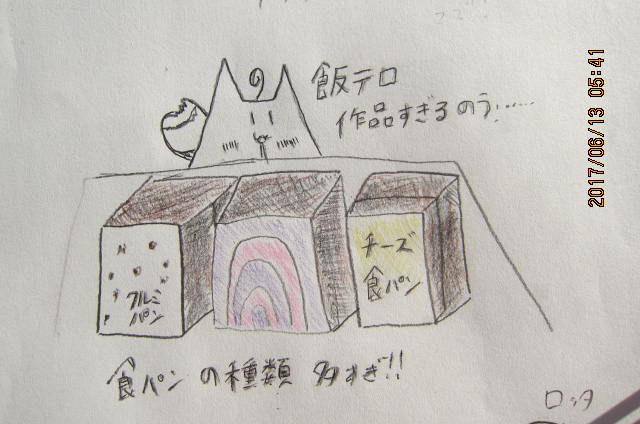 飯テロ
作品すぎるのう……
クルミ
パン
チーズ
食パン
食パンの種類 多すぎ!!
ロッタ
2017/06/13 05:41